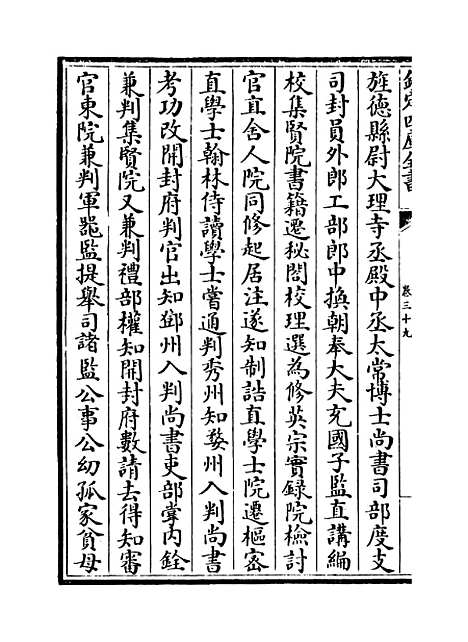 欽定四庫全書
卷三十九
旌德縣尉大理寺丞殿中丞太常博士尚書司部度支
司封員外郎工部郎中換朝奉大夫充國子監直講編
校集賢院書籍遷秘閣校理選為修英宗實録院檢討
官直舍人院同修起居注遂知制誥直學士院遷樞密
直學士翰林侍讀學士嘗通判秀州知婺州入判尚書
考功改開封府判官出知鄧州入判尚書吏部彚内銓
兼判集賢院又兼判禮部權知開封府數請去得知審
官東院兼判軍器監提舉司諸監公事公幼孤家貧母